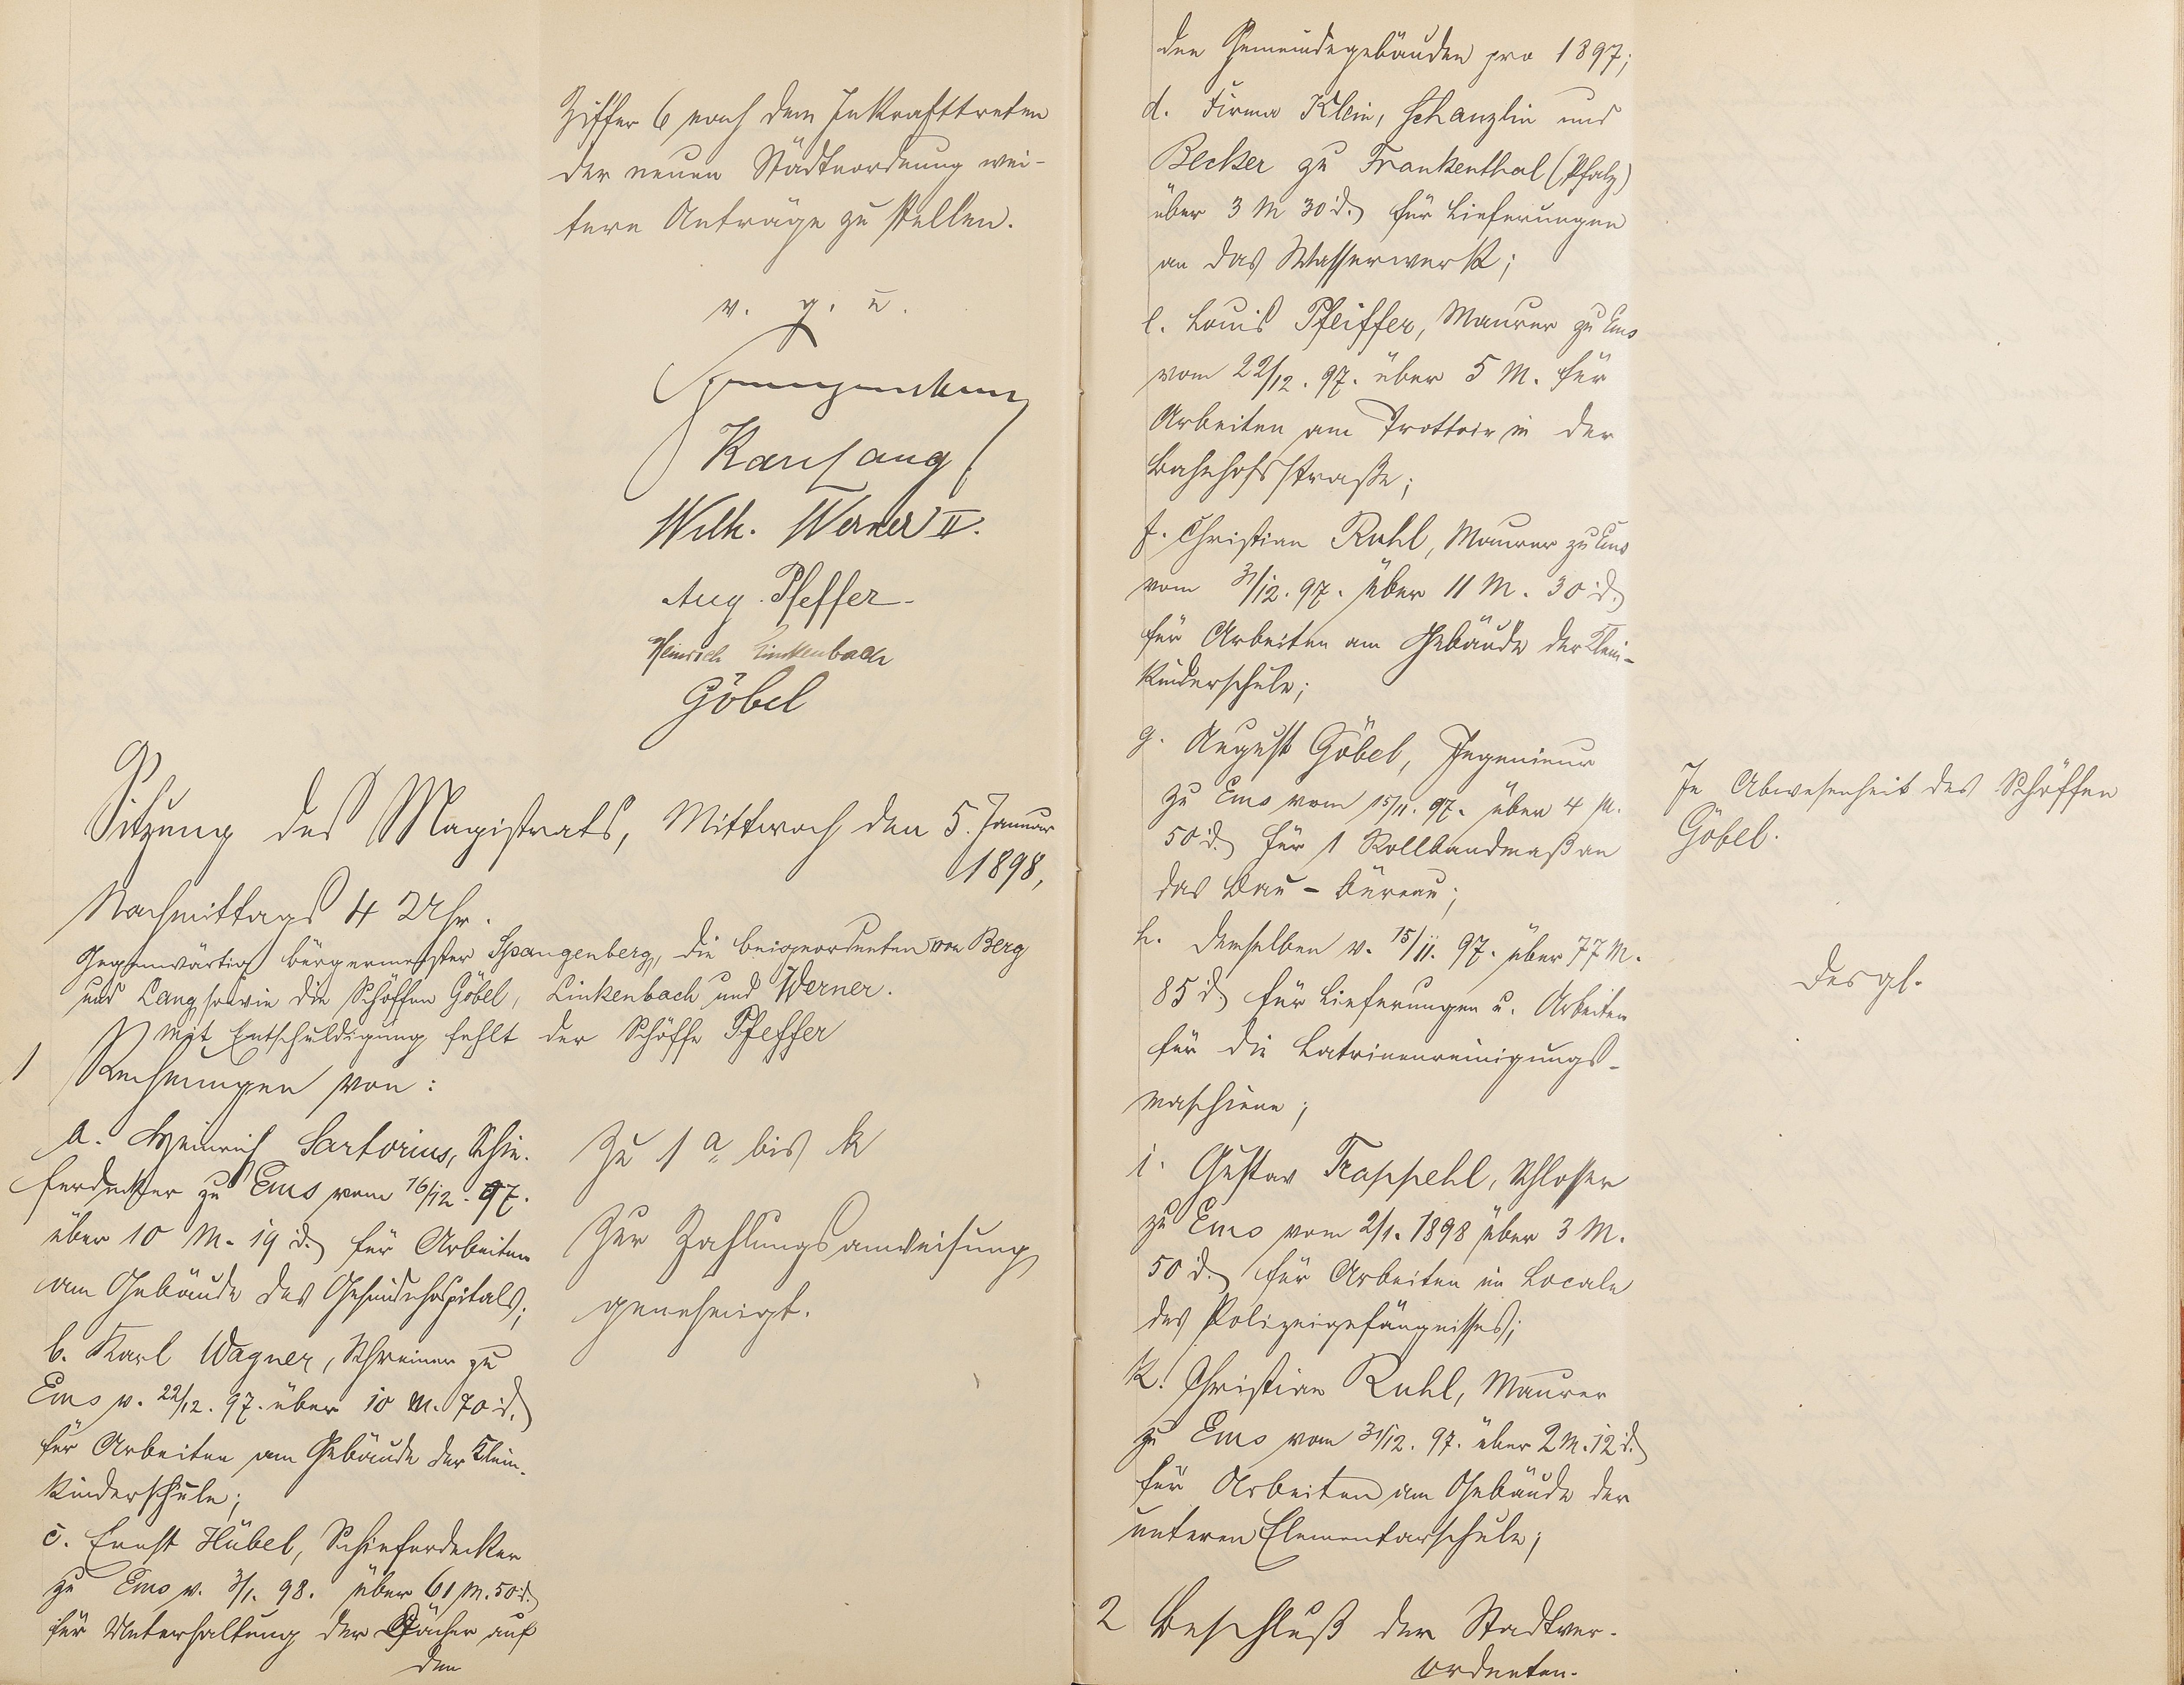 Ziffer 6 nach dem Inkrafttreten
der neuen Städteordnung wei-
tere Anträge zu stellen.
v. g. u.
Spangenberg
Karl Lang
Wilh. Werner II.
Aug. Pfeffer
Heinrich Linkenbach
Göbel
Sitzung des Magistrats, Mittwoch den 5. Januar
1898,
Nachmittags 4 Uhr.
Gegenwärtig Bürgermeister Spangenberg, die Beigeordneten von Berg
und Lang sowie die Schöffen Göbel, Linkenbach und Werner.
Mit Entschuldigung fehlt der Schöffe Pfeffer
1 Rechnungen von:
a. Heinrich Sartorius, Schie-
ferdecker zu Ems vom 16/12. 97.
über 10 M. 19 d. für Arbeiten
am Gebäude des Gesindehospitals;
b. Karl Wagner, Schreiner zu
Ems v. 22/12. 97. über 10 M. 70 d.
für Arbeiten am Gebäude der Klein-
kinderschule;
c. Ernst Hübel, Schieferdecker
zu Ems v. 3/1. 98. über 61 M. 50 d.
für Unterhaltung der Dächer auf
den
Zu 1 a bis k
Zur Zahlungsanweisung
genehmigt.
den Gemeindegebäuden pro 1897;
d. Firma Klein, Schanzlin und
Becker zu Frankenthal (Pfalz)
über 3 M 30 d. für Lieferungen
an das Wasserwerk;
e. Louis Pfeiffer, Maurer zu Ems
vom 22/12. 97. über 5 M. für
Arbeiten am Trottoir in der
Bahnhofsstraße;
f. Christian Ruhl, Maurer zu Ems
vom 31/12. 97. über 11 M. 30 d.
für Arbeiten am Gebäude der Klein-
kinderschule;
g. August Göbel, Ingenieur
zu Ems vom 15/11. 97. über 4 M.
50 d. für 1 Rollbandmaß an
das Bau-Büreau;
In Abwesenheit des Schöffen
Göbel.
h. demselben v. 15/11. 97. über 77 M.
85 d. für Lieferungen u. Arbeiten
für die Latrinenreinigungs-
maschiene;
desgl.
i. Gustav Trappehl, Schlosser
zu Ems vom 2/1. 1898 über 3 M.
50 d. für Arbeiten im Locale
des Polizeigefängnisses;
k. Christian Ruhl, Maurer
zu Ems vom 31/12. 97. über 2 M. 12 d.
für Arbeiten am Gebäude der
unteren Elementarschule;
2 Beschluß der Stadtver-
ordneten-